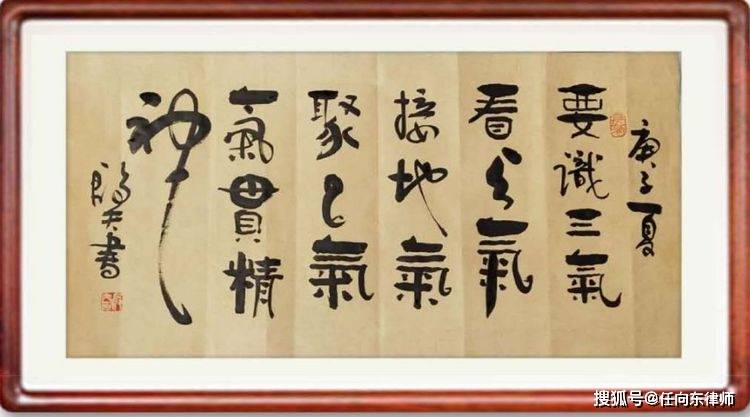 庚子夏
要識三氣
看天氣
接地氣
聚人氣
一氣貫精
神
書
搜狐号@任向东律师